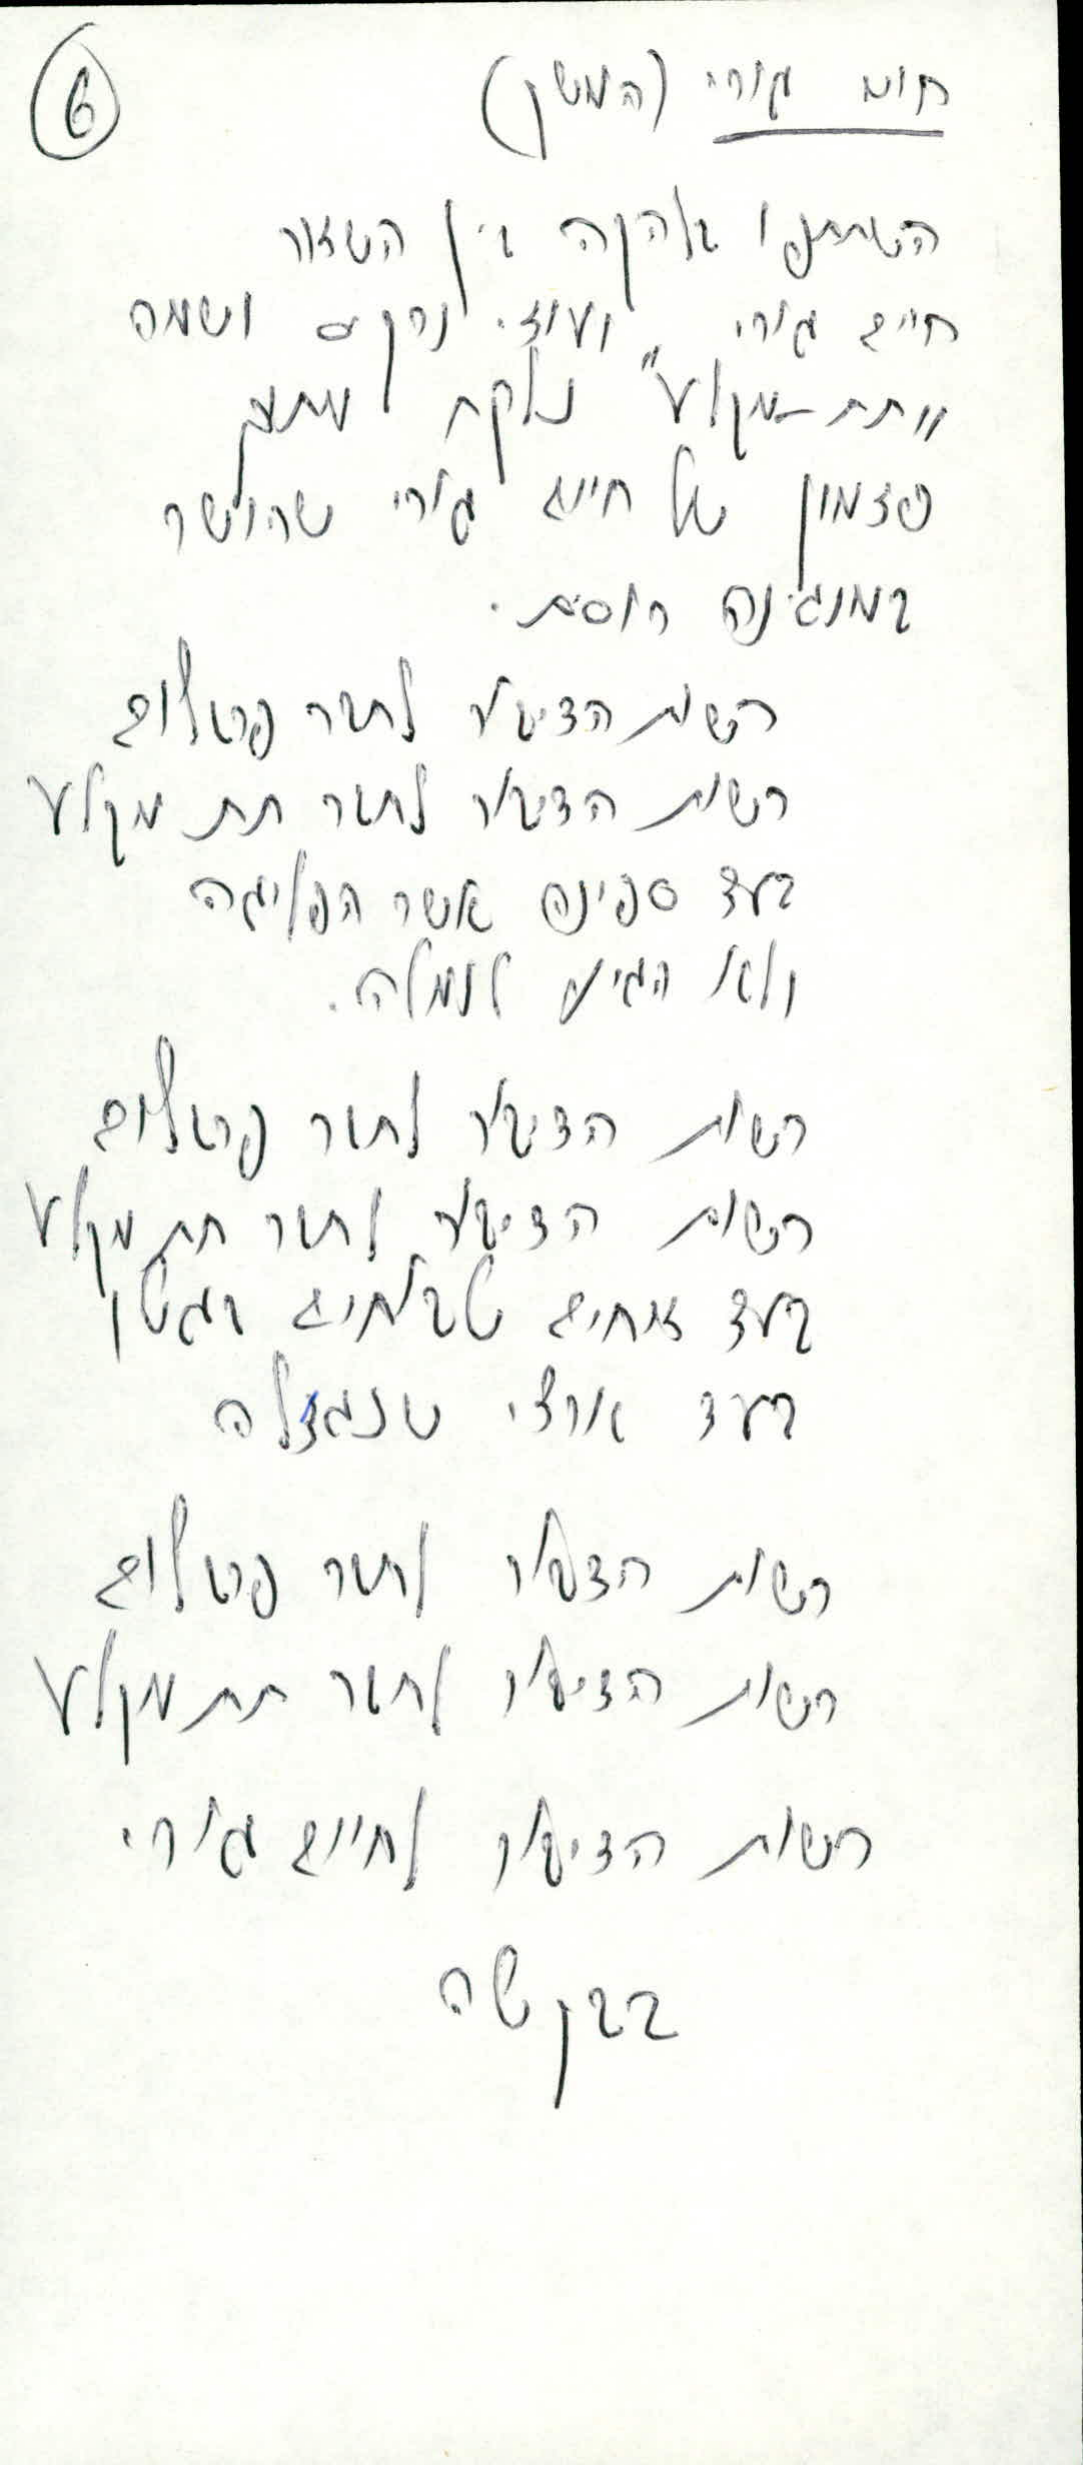 6
חיים גורי (המשך)
השתתפו בלהקה בין השאר
חיים גורי, ועוזי נרקיס ושמה
"תת-מקלע" נלקח מתוך
פזמון של חיים גורי שהושר
במנגינה רוסית.
רשות הדיבור לחבר פרבלום
רשות הדיבור לחבר תת מקלע
בעד ספינה אשר הפליגה
ולא הגיעה לנמלה.
רשות הדיבור לחבר פרבלום
רשות הדיבור לחבר תת מקלע
בעד אחים שבלחים
בעד ארצי שנגזלה
רשות הדבור לחבר פרבלום
רשות הדיבור לחבר תת מקלע
רשות הדיבור לחיים גורי
בבקשה